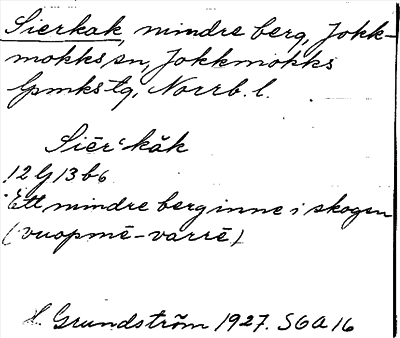 Sierkak, mindre berg, Jokk-
mokks sn, Jokkmokks
lpmks tg, Norrb. l.
Siēr῾kăk
12 G 13 b 6
Ett mindre berg inne i skogen
(vuopmē-varrē)
H Grundström 1927. SOA 16